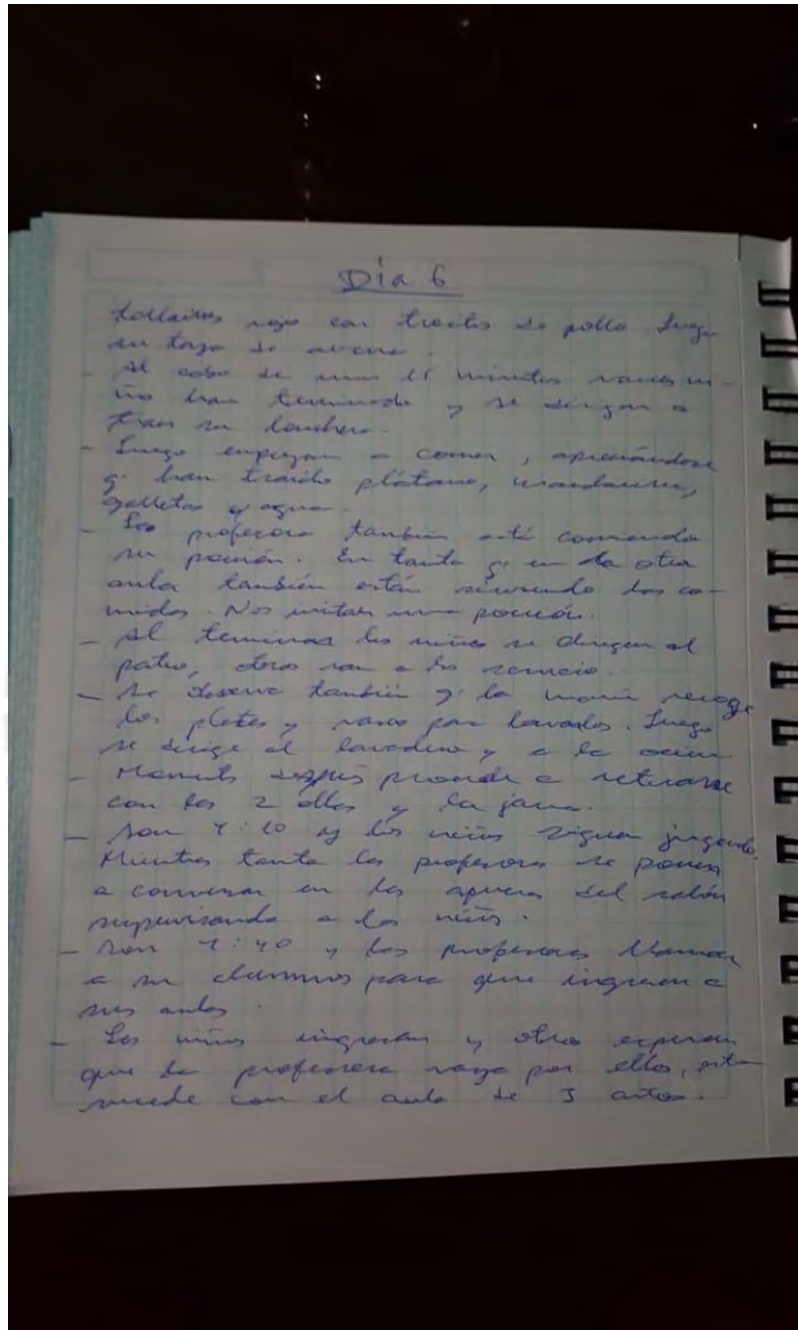 Día 6
tallarines rojo con trocitos de pollo. Luego
su taza de avena.
- Al cabo de unos 15 minutos varios ni-
ños han terminado y se dirigen a
traer su lonchera.
- Luego empiezan a comer, apreciándose
q' han traído plátano, mandarina,
galletas y agua.
- Las profesora también está comiendo
su porción. En tanto q' en la otra
aula también están sirviendo las co-
midas. Nos invitan una porción.
- Al terminar los niños se dirigen al
patio, otros van a los servicio.
- Se observa también q' la mamá recoge
los platos y vasos par lavados. Luego
se dirige al lavadero y a la cocina.
- Momento después procede a retirarse
con las 2 ollas y la jarra.
- Son 4:10 y los niños siguen jugando.
Mientras tanto las profesoras se ponen
a conversar en las afueras del salón
supervisando a los niños.
- Son 4:40 y las profesoras llaman
a su alumnos para que ingresen a
sus aulas.
- Los niños ingresan y otros esperan
que la profesora vaya por ellos, esto
sucede con el aula de 3 años.